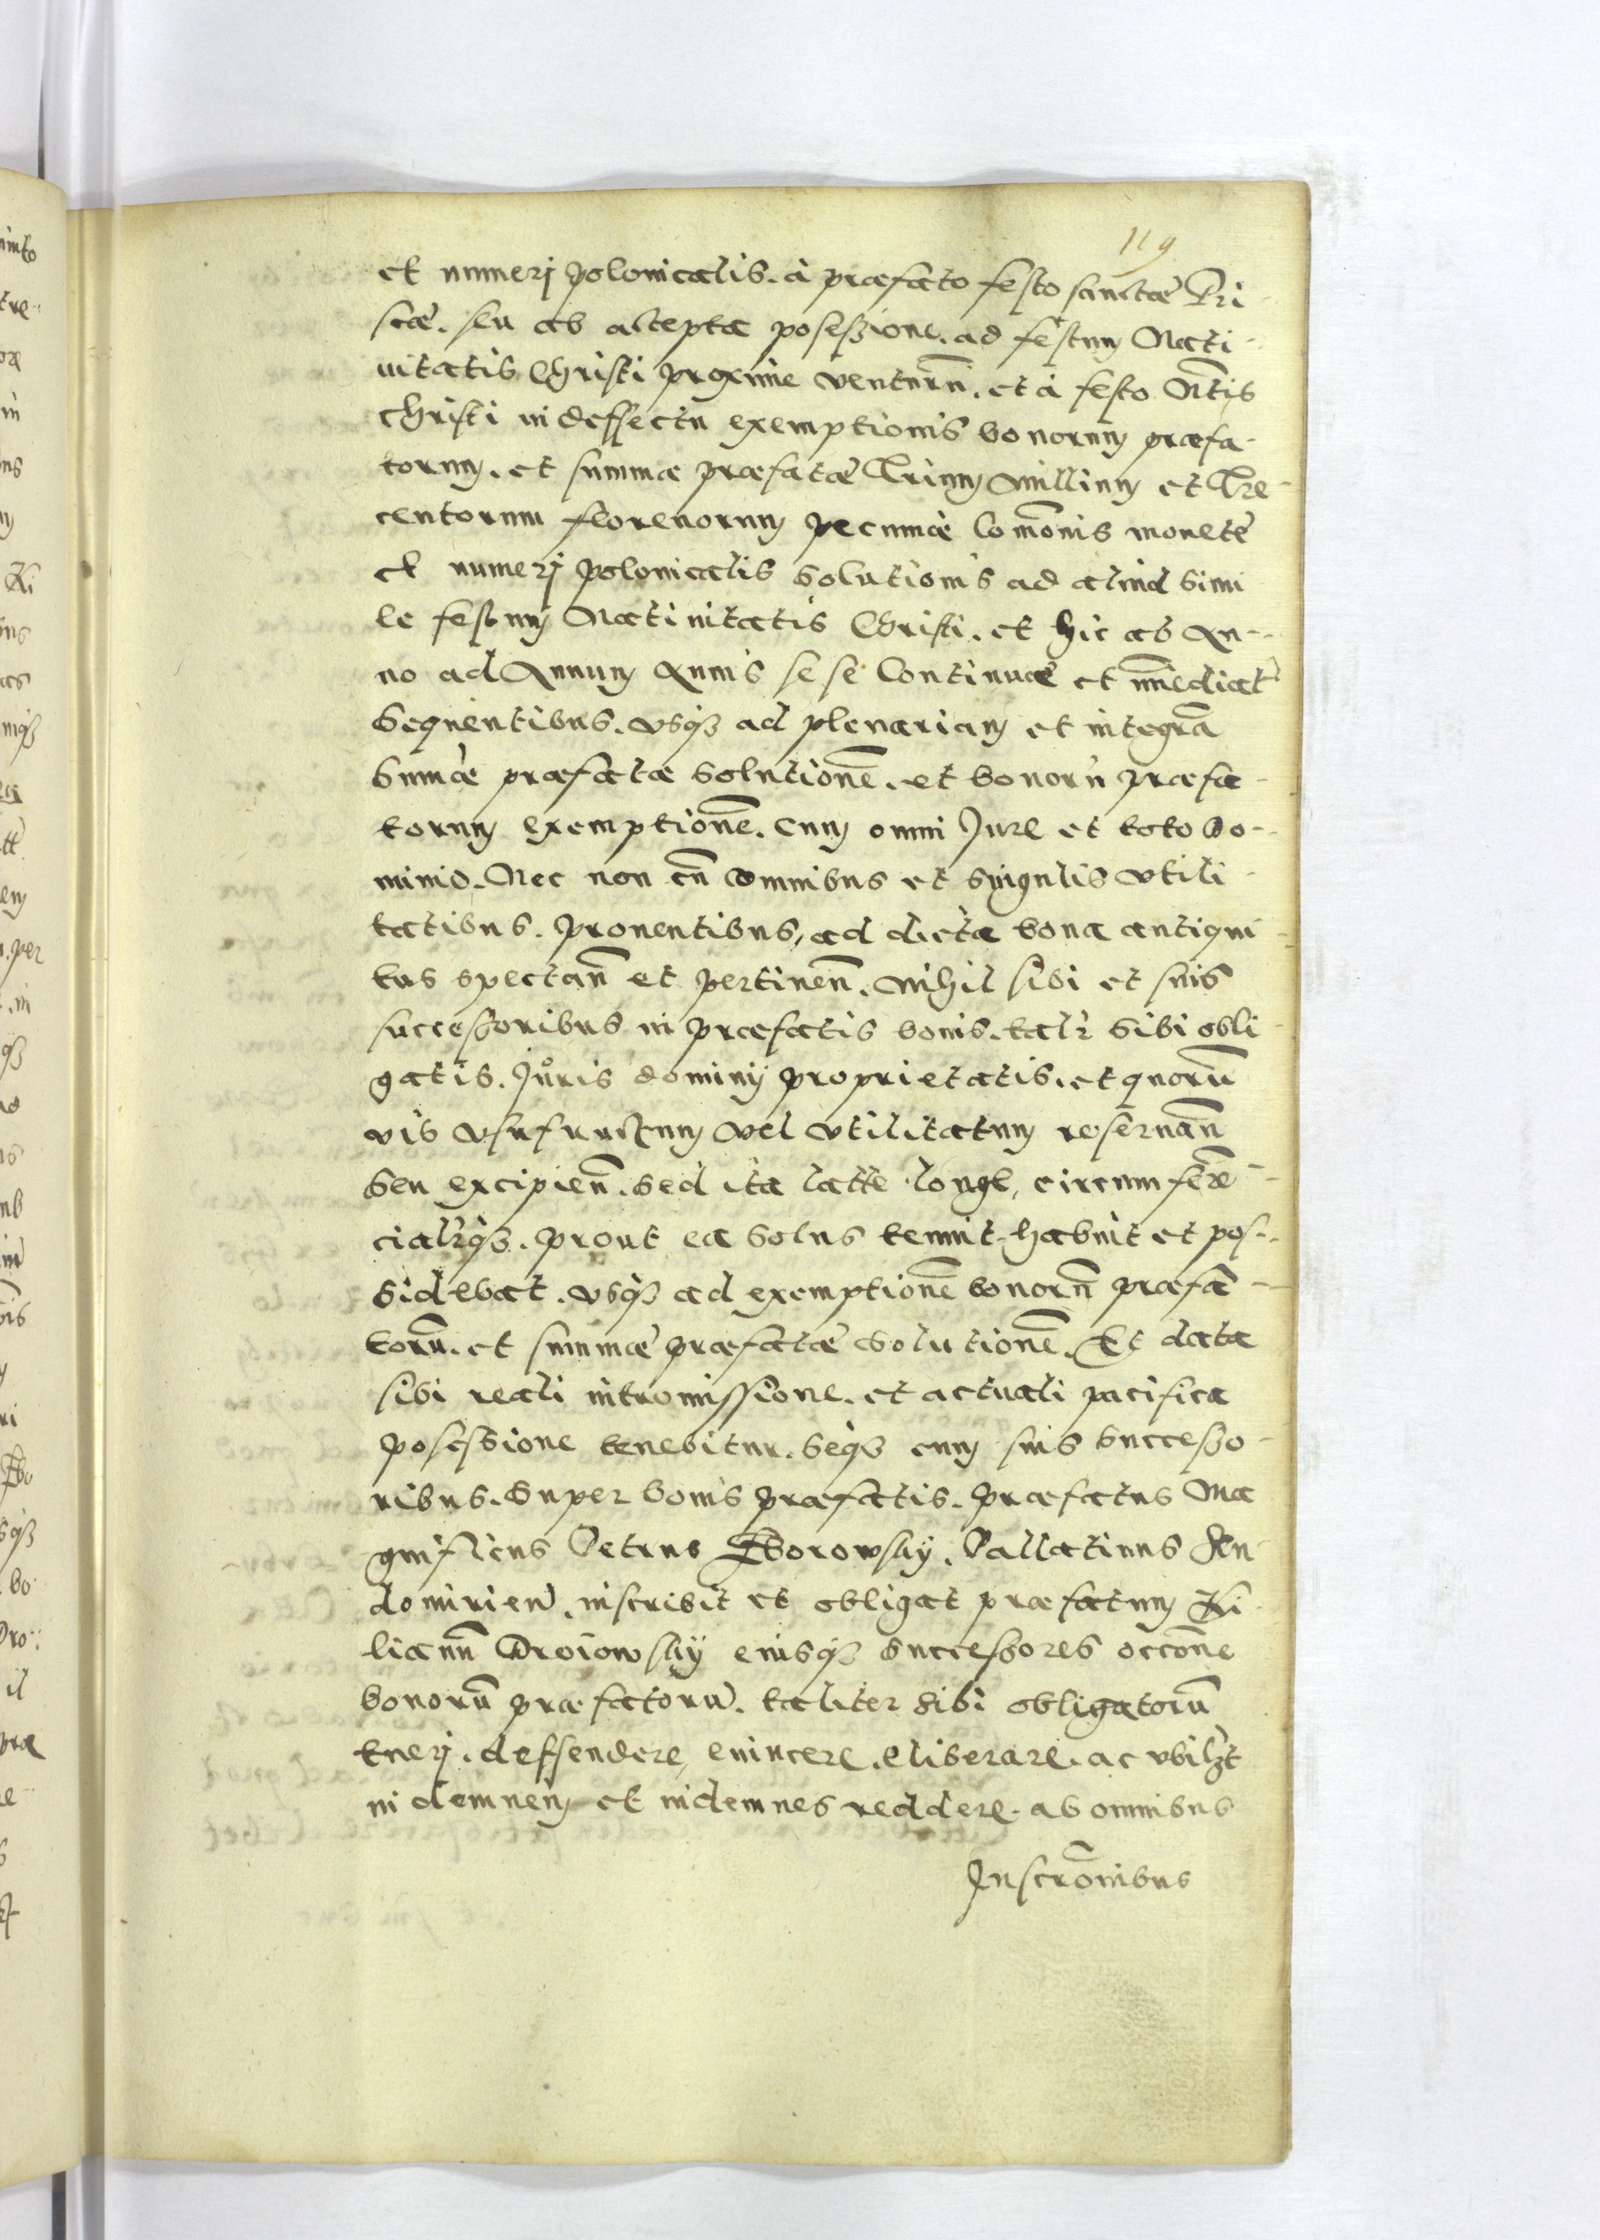 119
et numerj polonicalis. à præfato festo sanctæ Pri-
scæ. seu ab accepta posessione. ad festum Nati-
uitatis Christi proxime venturũ. et à festo Ntĩs
Christi in deffectu exemptionis bonorum præfa-
torum. et summæ præfatæ Trium Millium et Tre-
centorum florenorum pecuniæ Com̃onis monetæ
et numerj polonicalis solutionis ad aliud simi
le festum Natiuitatis Christi. et hic ab An-
no ad Annum Annis se se Continuæ et im̃ediatè
sequentibus. vsq3 ad plenariam et integrã
Sum̃æ præfatæ solutionẽ. et bonorũ præfa-
torum exemptionẽ. cum omni Jure et toto do-
minio. Nec non cũ omnibus et singulis vtili-
tatibus. prouentibus, ad dicta bona antiqui-
tus spectañ et pertineñ. nihil sibi et suis
successoribus in præfatis bonis. talr̃ sibi obli-
gatis. Juris dominij proprietatis. et quorũ
vis vsufructuum vel vtilitatum reseruañ
seu excipieñ. sed ita latte longe, circumferẽ-
cialr̃q3. prout ea solus tenuit. habuit et pos-
sidebat. vsq3 ad exemptionẽ bonorũ præfa-
torũ. et summæ præfatæ solutionẽ. Et data
sibi reali intromissione. et actuali pacifica
posessione tenebitur. seq3 cum suis successo-
ribus. super bonis præfatis. præfatus Ma
gnificus Petrus Sborowsky. Pallatinus San
domirieñ. inscribit et obligat præfatum Ki-
lianũ Droiowsky eiusq3 successores occõne
bonorũ præfatorũ. taliter sibi obligatorũ
tuerj. deffendere, euincere. eliberare. ac vbilz̃t
indemnem et indemnes reddere. ab omnibus
Inscrõnibus